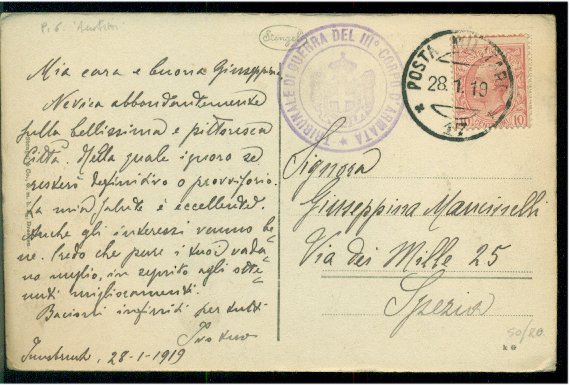 Pr. 6.
Stengel
Mia cara e buona Giuseppina
Nevica abbondantemente
sulla bellissima e pittoresca
città. Nella quale ignoro se
resterò definitivo o provvisorio.
La mia salute è eccellente.
Anche gli interessi vanno be=
ne. Credo che pure i tuoi vada=
no meglio, in seguito agli otte=
nuti miglioramenti.
Bacioni infiniti per tutti
Tuo
Innsbruck, 28-1-1919
TRIBUNALE DI GUERRA DEL III° CORPO D'ARMATA
POSTA MILITARE
28.1.19
17
10
Signora
Giuseppina Mancinelli
Via dei Mille 25
Spezia
50/20